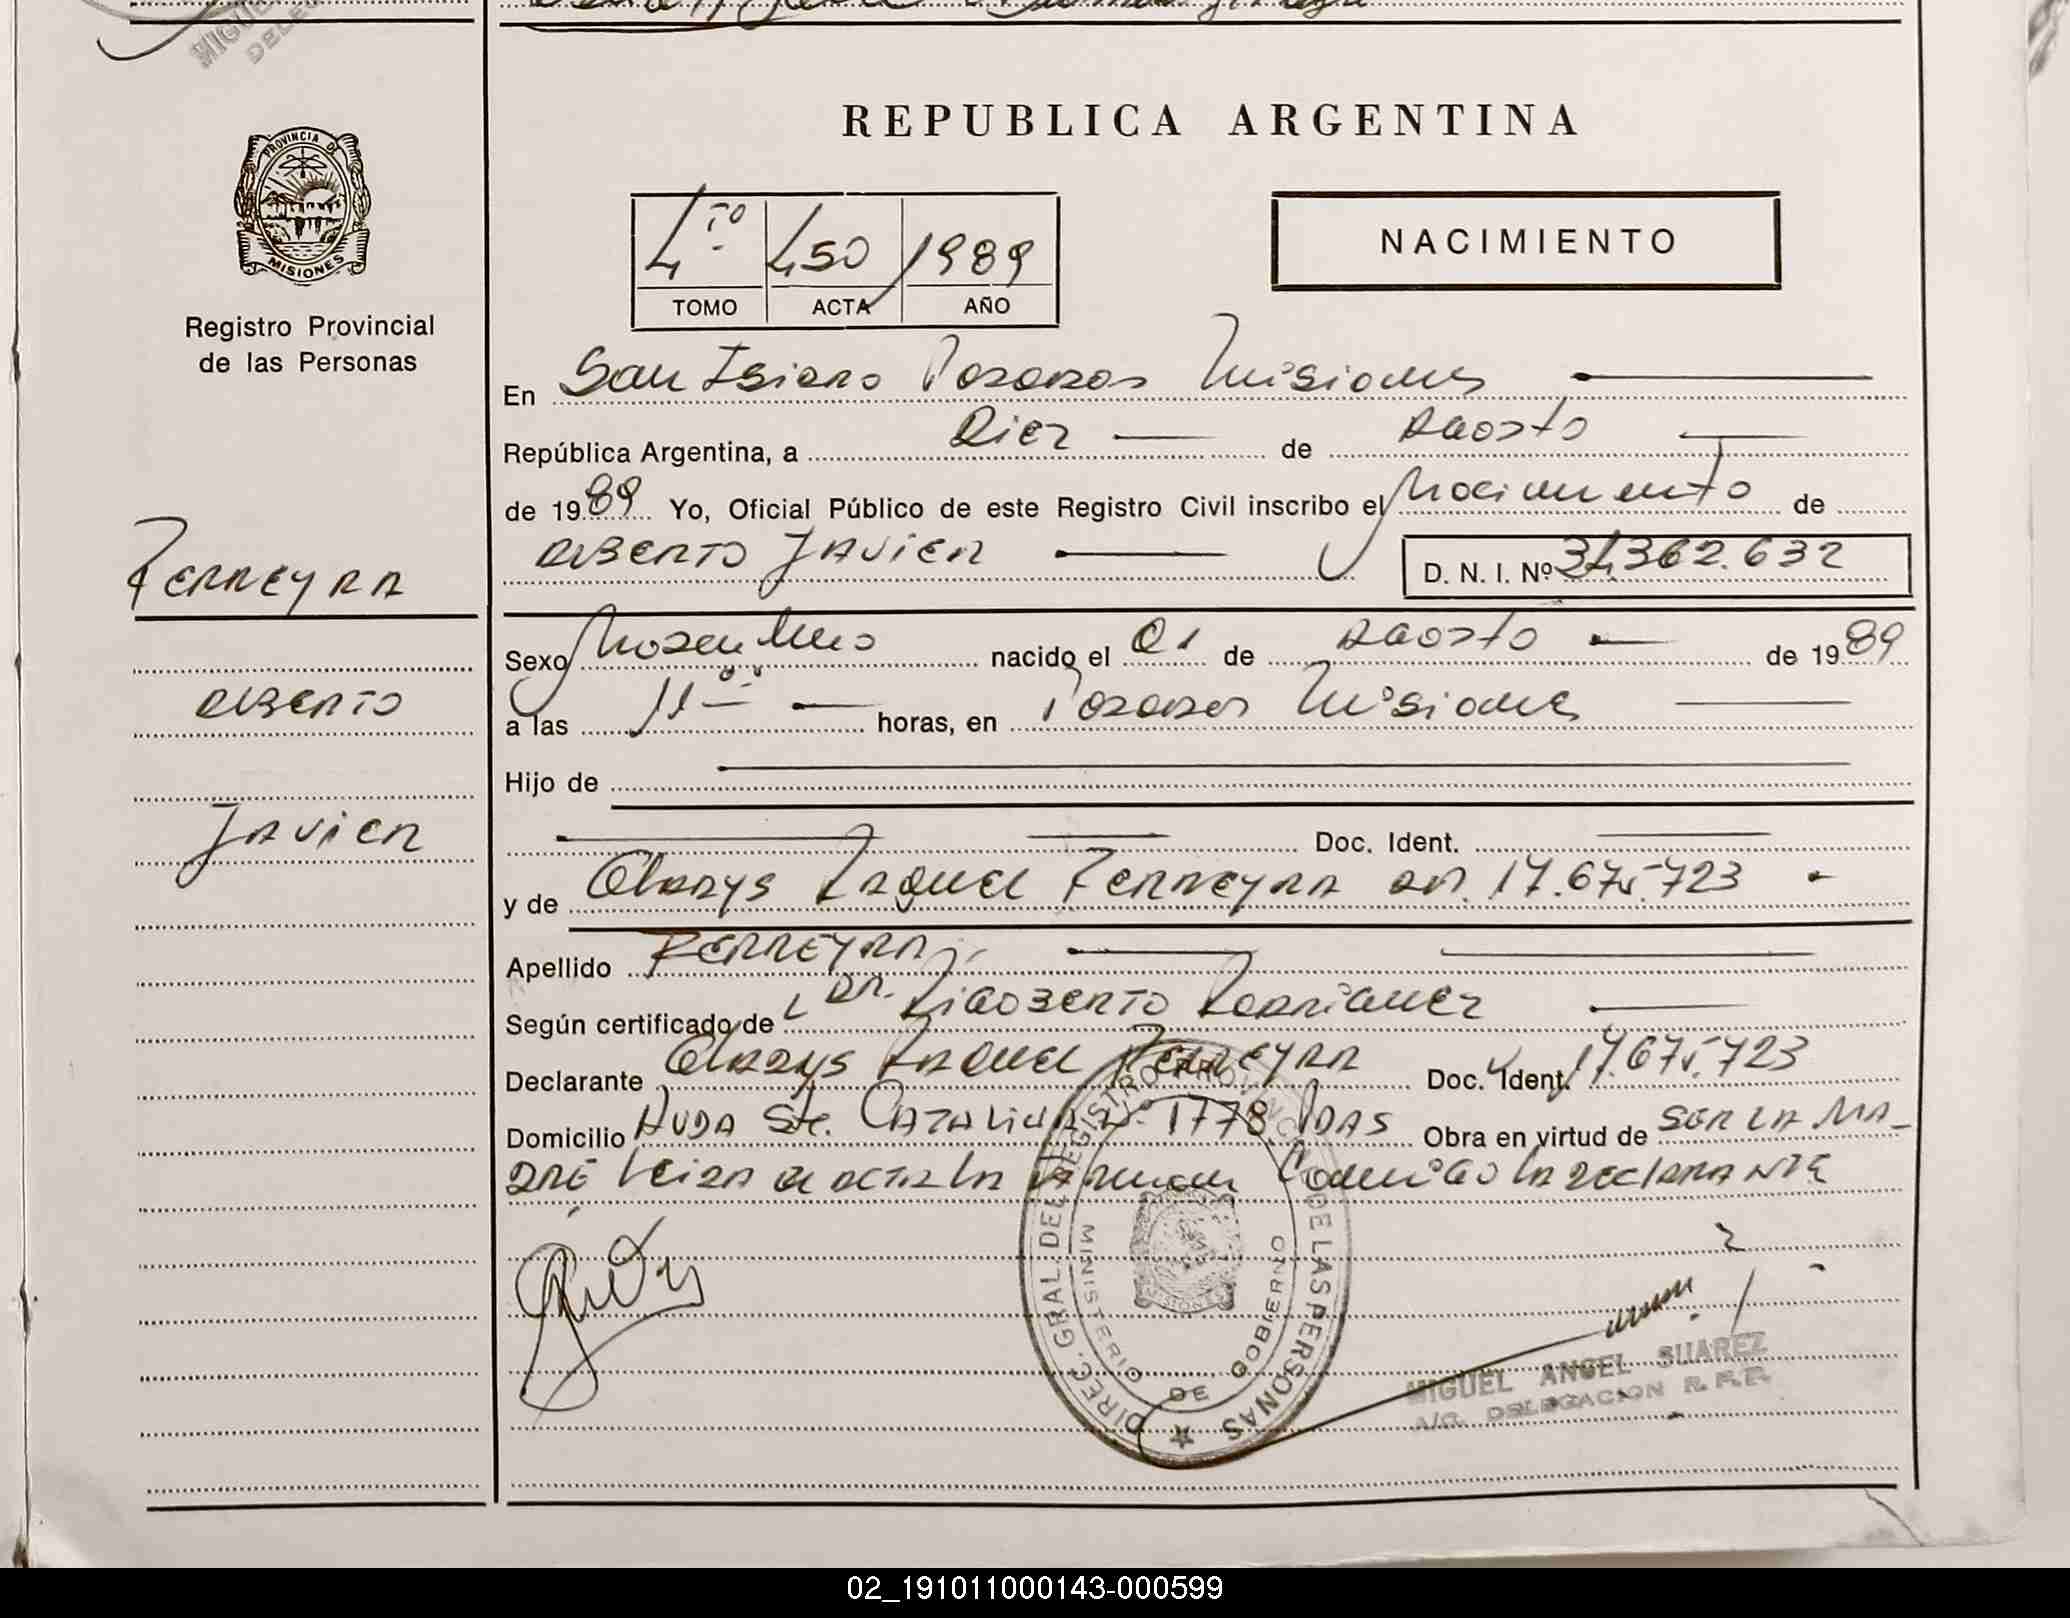 MIGUEL
REPUBLICA ARGENTINA
PROVINCIA DE
MISIONES
4to 450 1989
TOMO ACTA AÑO
NACIMIENTO
Registro Provincial
de las Personas
En San Isidro Posadas Misiones
República Argentina, a Diez de Agosto
de 1989 Yo, Oficial Público de este Registro Civil inscribo el Nacimiento de
Alberto Javier D. N. I. Nº 34.362.632
FERREYRA
Sexo Masculino nacido el 01 de Agosto de 1989
Alberto
a las 11 horas, en Posadas Misiones
Hijo de
Javier
Doc. Ident.
y de Gladys Raquel Ferreyra DNI. 17.675.723
Apellido FERREYRA
Según certificado de DR. Rigoberto Rodriguez
Declarante Gladys Raquel Ferreyra Doc. Ident. 17.675.723
Domicilio AVDA Sta. CATALINA Nº 1778 PDAS Obra en virtud de SER LA MA-
DRE Leida el acta la firman Conmigo la declarante
DIREC. GRAL. DEL REGISTRO PROVINCIAL DE LAS PERSONAS
MINISTERIO DE GOBIERNO
MISIONES
MIGUEL ANGEL SUAREZ
A/C. DELEGACION R.P.P.
02_191011000143-000599